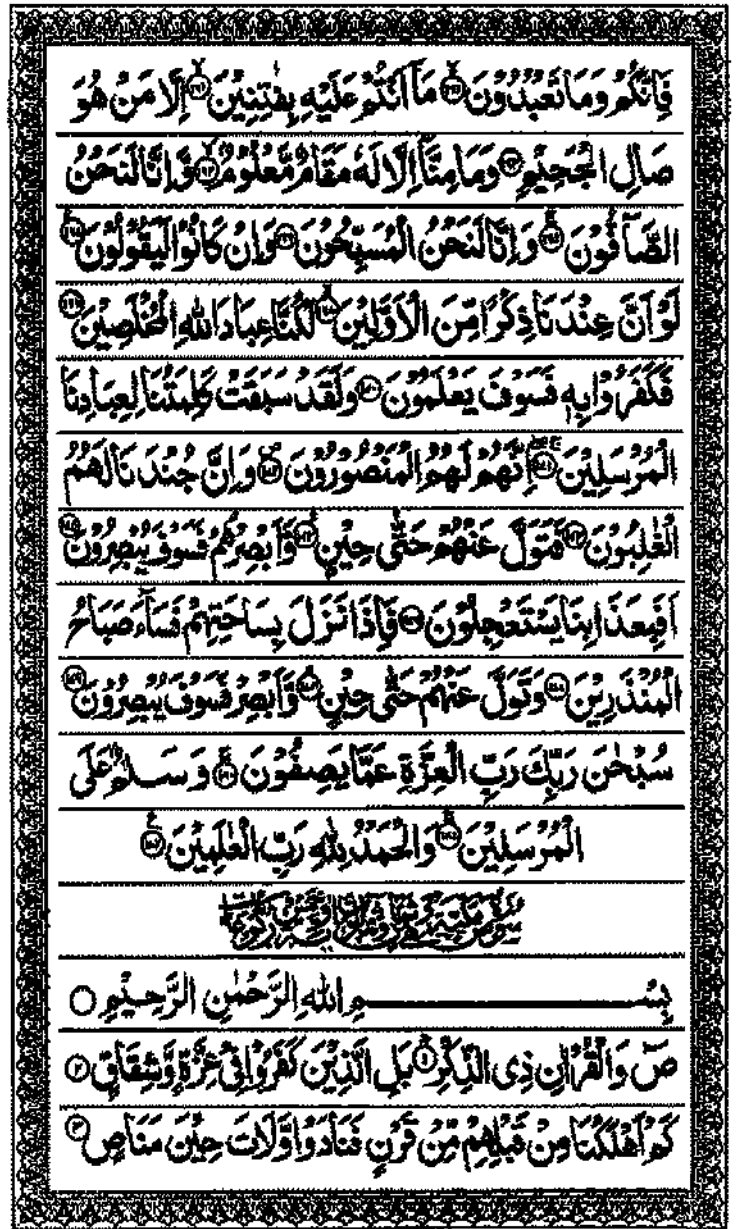 فَاِنَّكُمْ وَمَا تَعْبُدُوْنَ ۱۶۱ مَاۤ اَنْتُمْ عَلَيْهِ بِفٰتِنِيْنَ ۱۶۲ اِلَّا مَنْ هُوَ
صَالِ الْجَحِيْمِ ۱۶۳ وَمَا مِنَّاۤ اِلَّا لَهٗ مَقَامٌ مَّعْلُوْمٌ ۱۶۴ وَّاِنَّا لَنَحْنُ
الصَّآفُّوْنَ ۱۶۵ وَاِنَّا لَنَحْنُ الْمُسَبِّحُوْنَ ۱۶۶ وَاِنْ كَانُوْا لَيَقُوْلُوْنَ ۱۶۷
لَوْ اَنَّ عِنْدَنَا ذِكْرًا مِّنَ الْاَوَّلِيْنَ ۱۶۸ لَكُنَّا عِبَادَ اللّٰهِ الْمُخْلَصِيْنَ ۱۶۹
فَكَفَرُوْا بِهٖ فَسَوْفَ يَعْلَمُوْنَ ۱۷۰ وَلَقَدْ سَبَقَتْ كَلِمَتُنَا لِعِبَادِنَا
الْمُرْسَلِيْنَ ۱۷۱ اِنَّهُمْ لَهُمُ الْمَنْصُوْرُوْنَ ۱۷۲ وَاِنَّ جُنْدَنَا لَهُمُ
الْغٰلِبُوْنَ ۱۷۳ فَتَوَلَّ عَنْهُمْ حَتّٰى حِيْنٍ ۱۷۴ وَّاَبْصِرْهُمْ فَسَوْفَ يُبْصِرُوْنَ ۱۷۵
اَفَبِعَذَابِنَا يَسْتَعْجِلُوْنَ ۱۷۶ فَاِذَا نَزَلَ بِسَاحَتِهِمْ فَسَآءَ صَبَاحُ
الْمُنْذَرِيْنَ ۱۷۷ وَتَوَلَّ عَنْهُمْ حَتّٰى حِيْنٍ ۱۷۸ وَّاَبْصِرْ فَسَوْفَ يُبْصِرُوْنَ ۱۷۹
سُبْحٰنَ رَبِّكَ رَبِّ الْعِزَّةِ عَمَّا يَصِفُوْنَ ۱۸۰ وَسَلٰمٌ عَلَى
الْمُرْسَلِيْنَ ۱۸۱ وَالْحَمْدُ لِلّٰهِ رَبِّ الْعٰلَمِيْنَ ۱۸۲
بِسْمِ اللّٰهِ الرَّحْمٰنِ الرَّحِيْمِ ○
صٓ وَالْقُرْاٰنِ ذِى الذِّكْرِ ۱ بَلِ الَّذِيْنَ كَفَرُوْا فِىْ عِزَّةٍ وَّشِقَاقٍ ۲
كَمْ اَهْلَكْنَا مِنْ قَبْلِهِمْ مِّنْ قَرْنٍ فَنَادَوْا وَّلَاتَ حِيْنَ مَنَاصٍ ۳